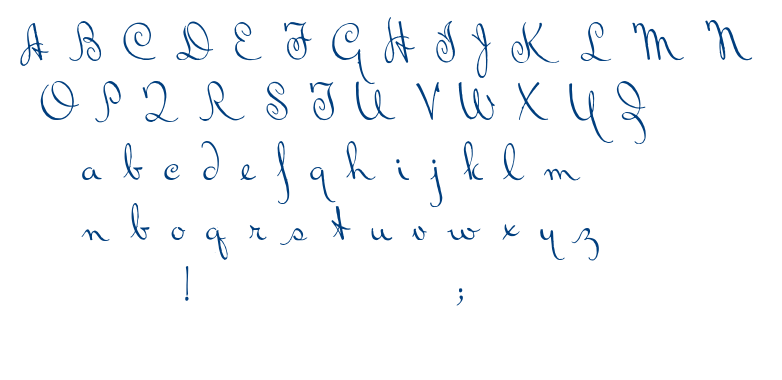 A B C D E F G H I J K L M N
O P Q R S T U V W X Y Z
a b c d e f g h i j k l m
n b o q r s t u v w x y z
! ;